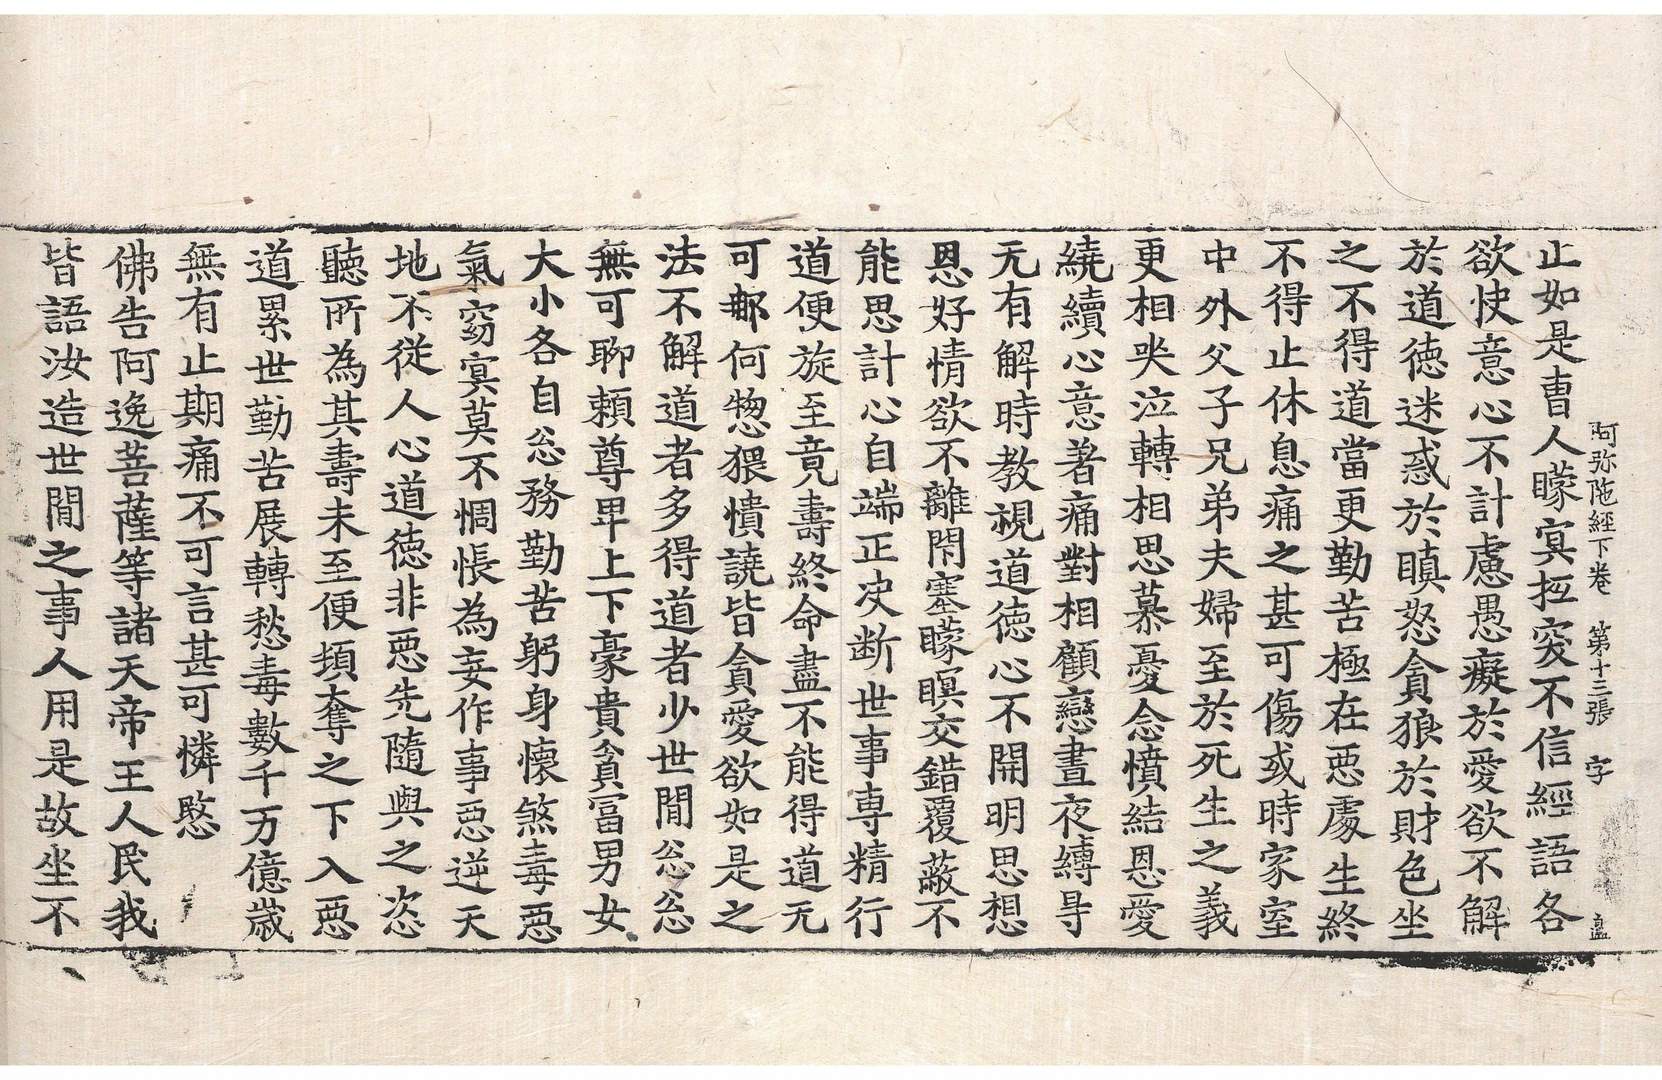 阿弥陁經下卷 第十三張 字
止如是曺人矇𡨋抵突不信經語各
欲快意心不計慮愚癡於愛欲不解
於道德迷惑於瞋怒貪狼於財色坐
之不得道當更勤苦極在惡處生終
不得止休息痛之甚可傷或時家室
中外父子兄弟夫婦至於死生之義
更相哭泣轉相思慕憂念憤結恩愛
繞續心意著痛對相顧戀晝夜縛㝵
无有解時教視道德心不開明思想
恩好情欲不離閇塞矇瞑交錯覆蔽不
能思計心自端正决断世事専精行
道便旋至竟壽終命盡不能得道无
可㖠何惣猥憒譊皆貪愛欲如是之
法不解道者多得道者少世間忩忩
無可聊頼尊卑上下豪貴貧富男女
大小各自忩務勤苦躬身懷煞毒惡
氣窈𡨋莫不惆悵為妄作事惡逆天
地不從人心道德非惡先隨與之恣
聽所為其壽未至便頓奪之下入惡
道累世勤苦展轉愁毒數千万億歳
無有止期痛不可言甚可憐愍
佛告阿逸菩薩等諸天帝王人民我
皆語汝造世間之事人用是故坐不